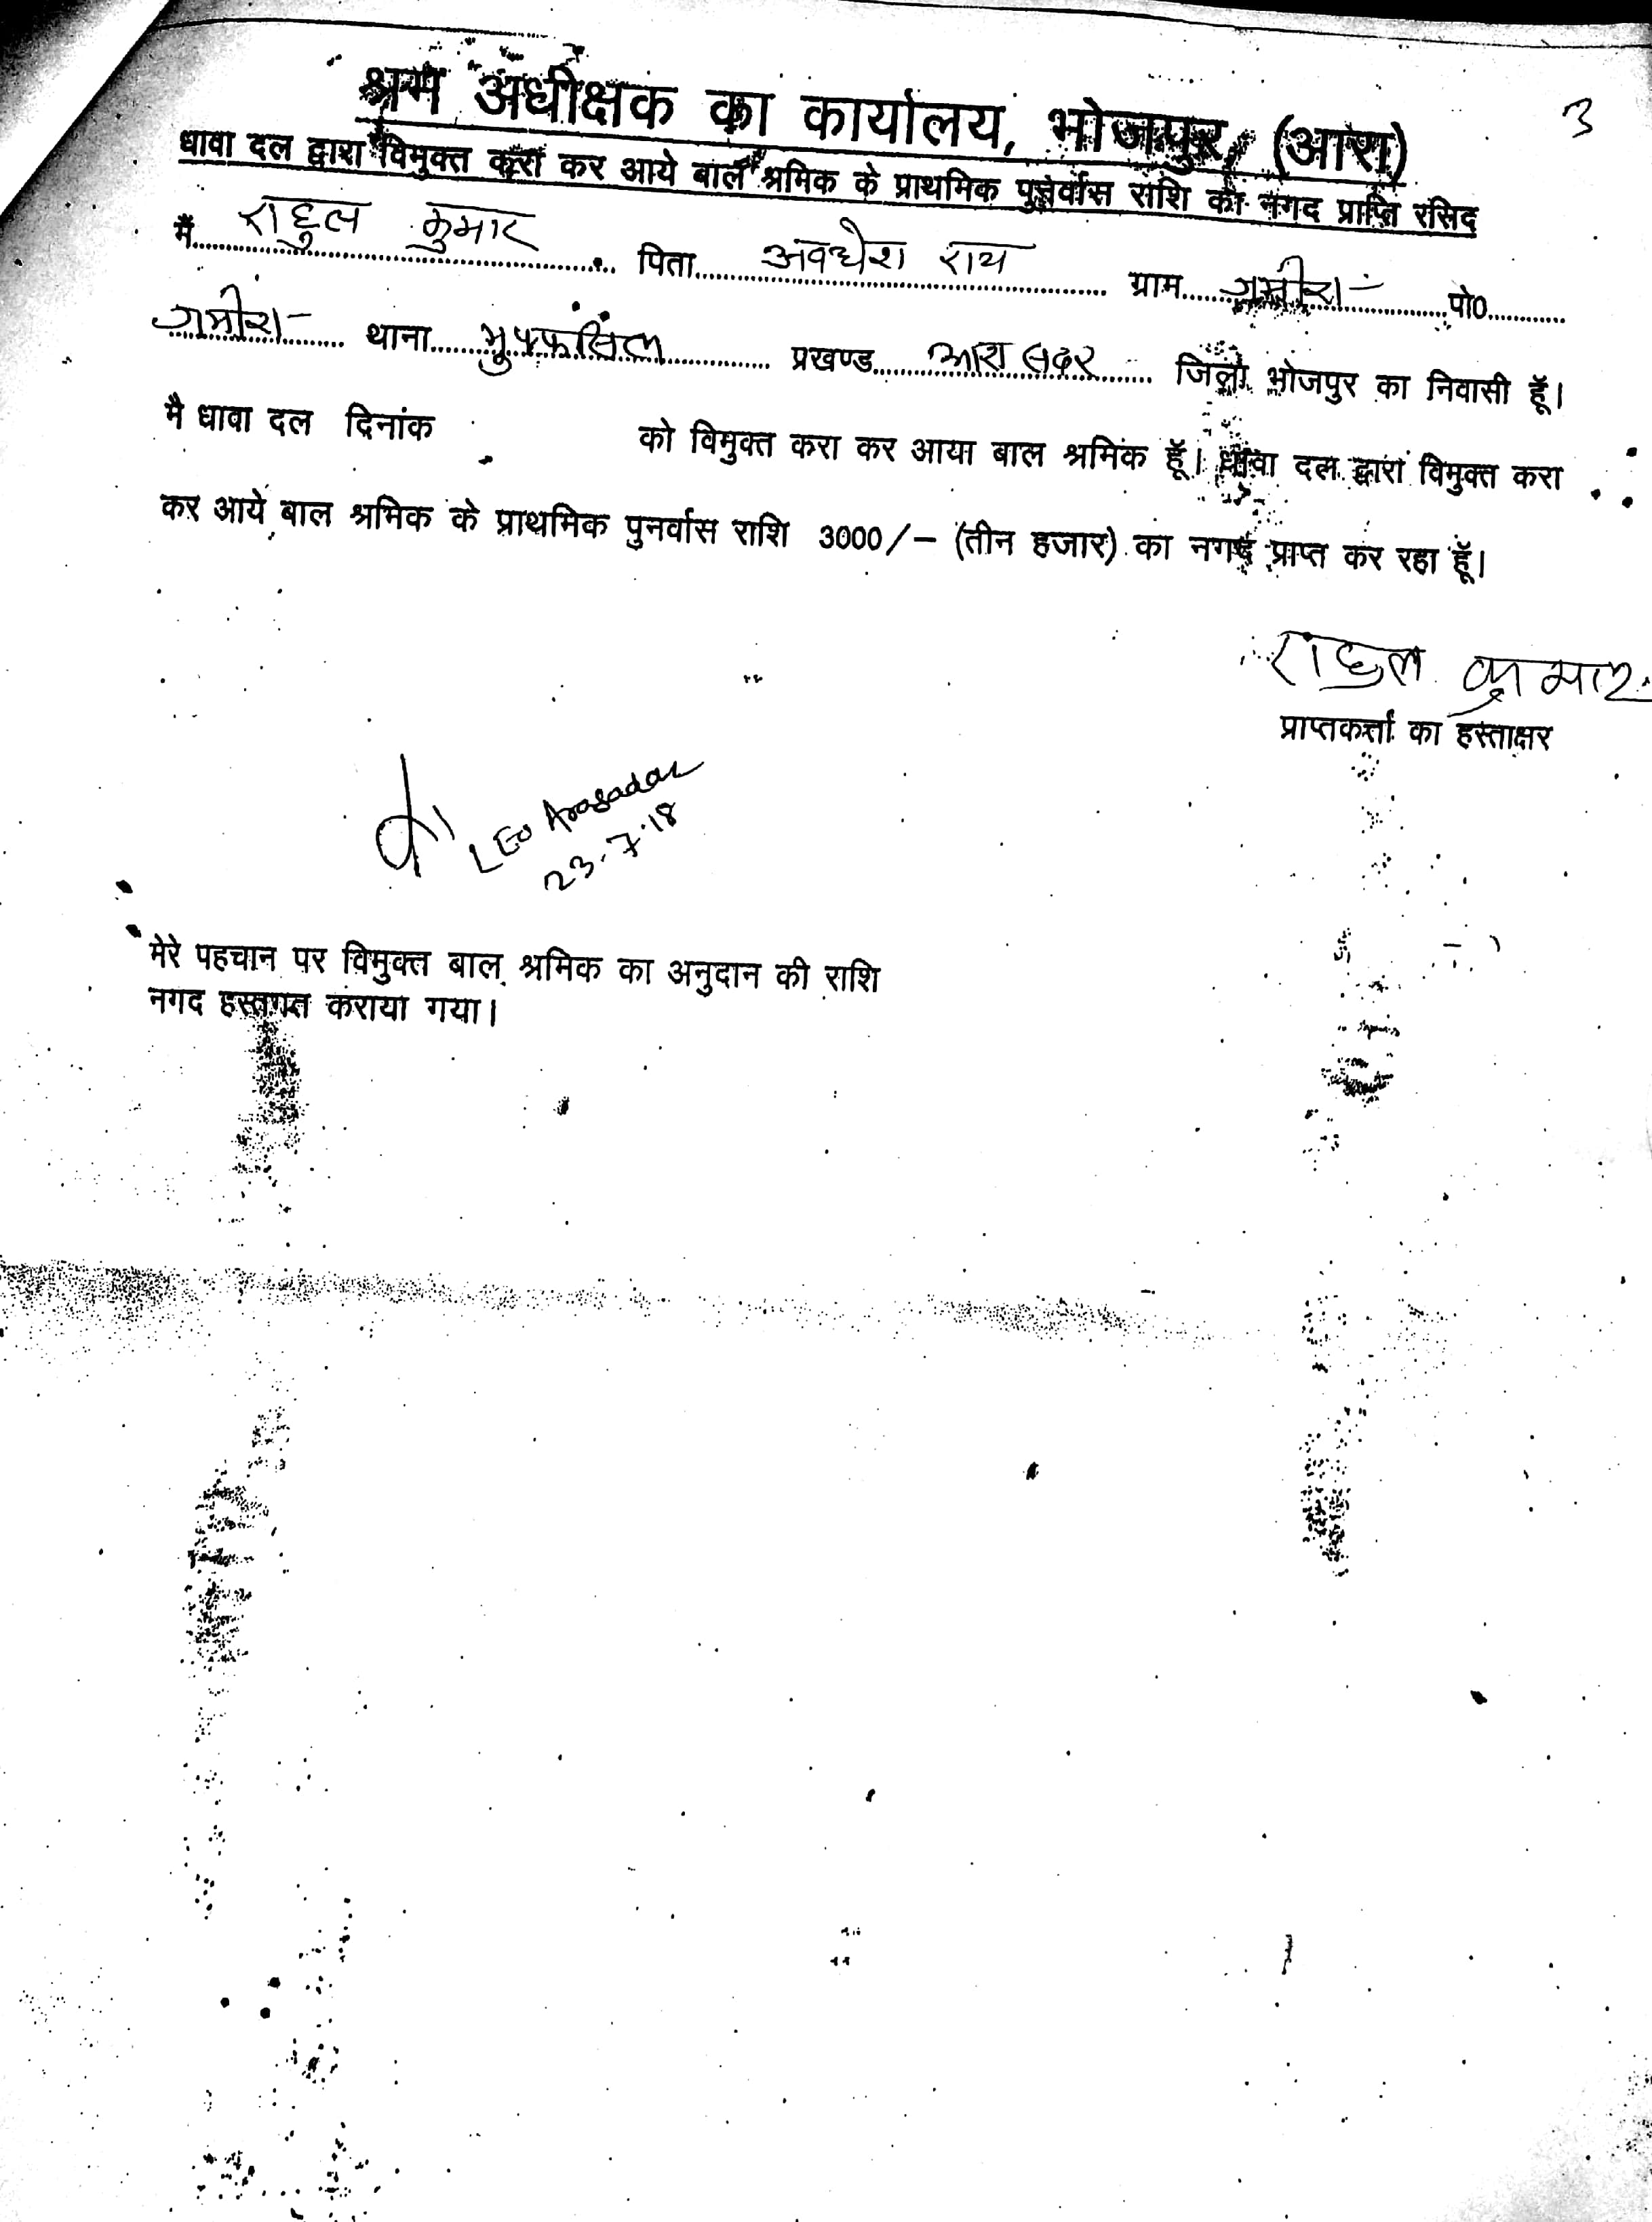 3
श्रम अधीक्षक का कार्यालय, भोजपुर, (आरा)
धावा दल द्वारा विमुक्त करा कर आये बाल श्रमिक के प्राथमिक पुनर्वास राशि का नगद प्राप्ति रसिद
मैं राहुल कुमार पिता अवधेश राय ग्राम पो0
थाना मुफ्फसिल प्रखण्ड आरा सदर जिला भोजपुर का निवासी हूँ।
मै धावा दल दिनांक को विमुक्त करा कर आया बाल श्रमिक हूँ। धावा दल द्वारा विमुक्त करा
कर आये बाल श्रमिक के प्राथमिक पुनर्वास राशि 3000/– (तीन हजार) का नगद प्राप्त कर रहा हूँ।
राहुल कुमार
प्राप्तकर्त्ता का हस्ताक्षर
LEO Arasadar
23.7.18
मेरे पहचान पर विमुक्त बाल श्रमिक का अनुदान की राशि
नगद हस्तगत कराया गया।